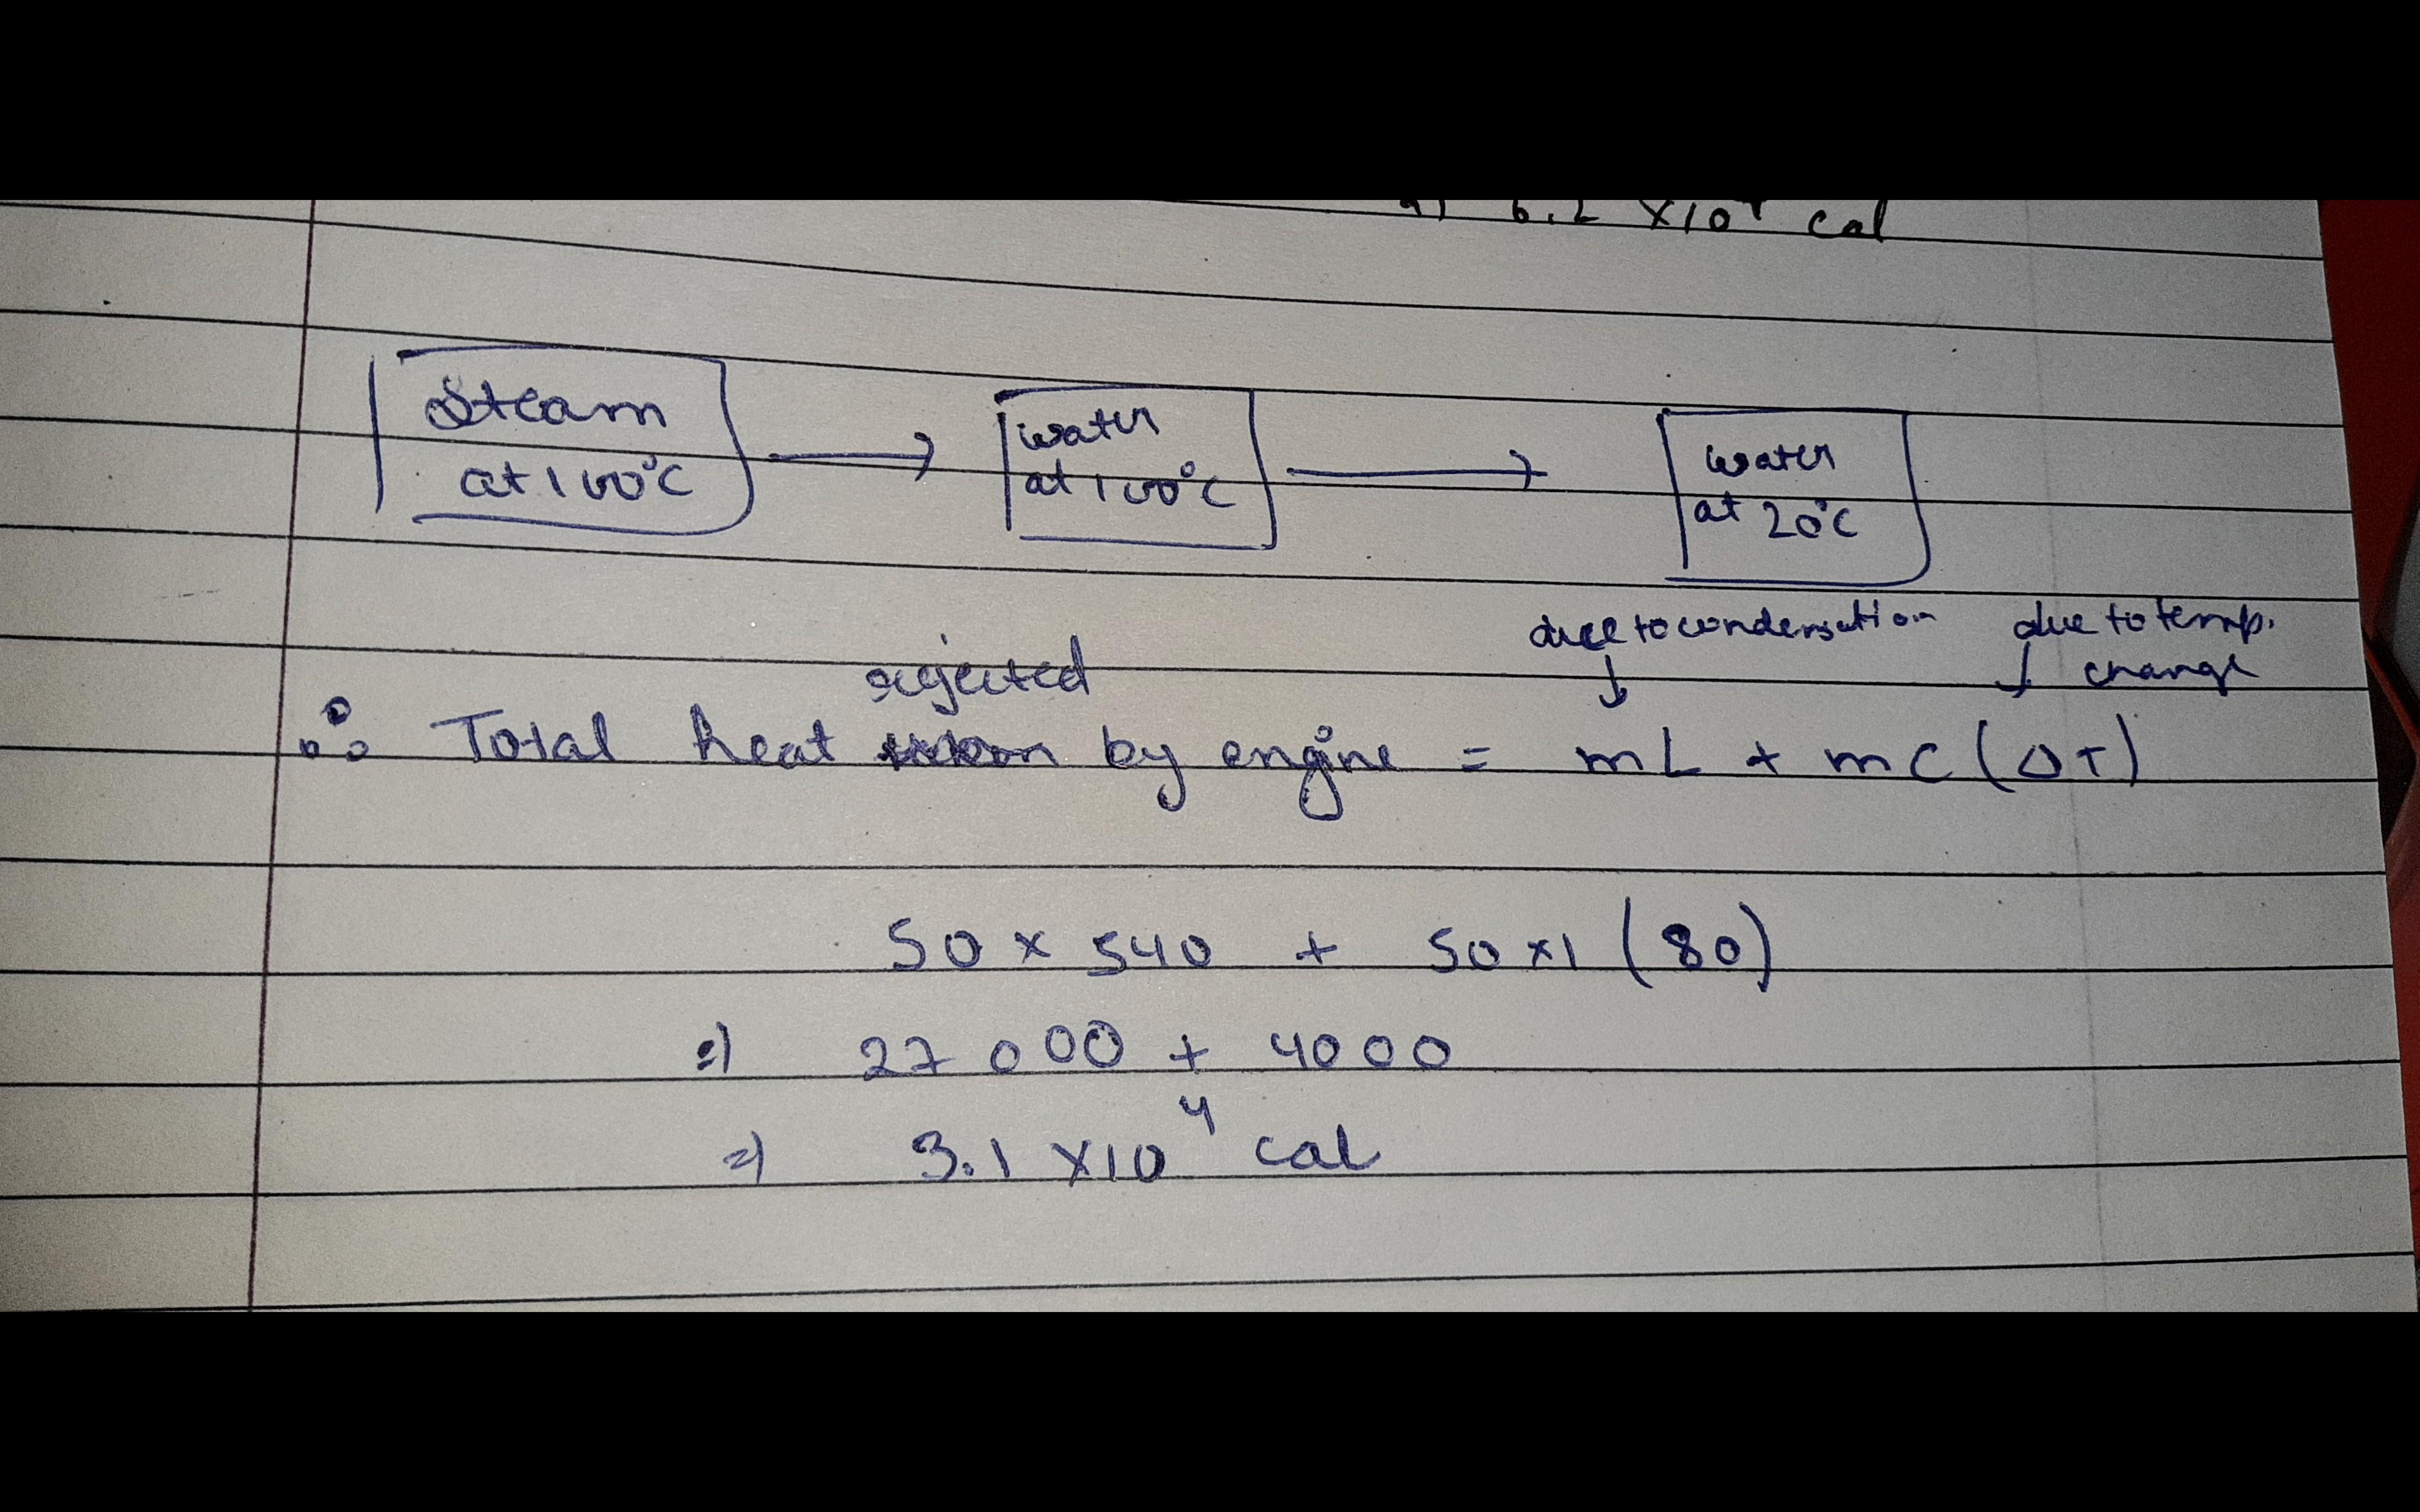 6.2 ×10⁴ cal
Steam
at 100°C
water
at 100°C
water
at 20°C
due to condensation
due to temp.
change
rejected
∴ Total heat by engine = mL + mC(ΔT)
50 × 540 + 50×1 (80)
⇒ 27000 + 4000
⇒ 3.1 ×10⁴ cal